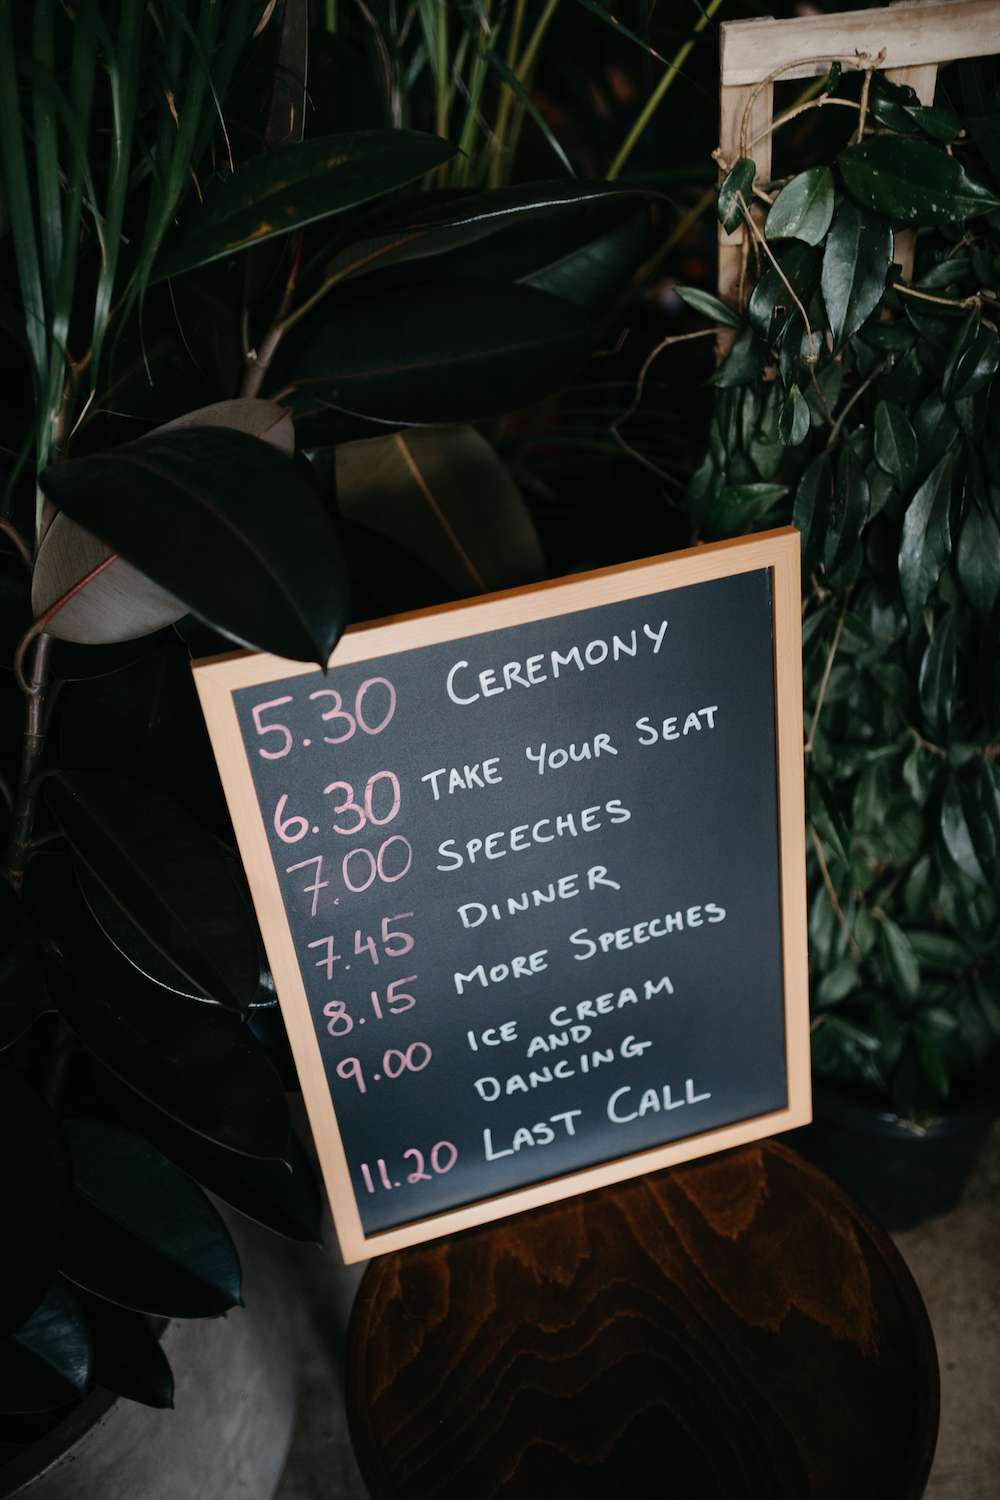 5.30 CEREMONY
6.30 TAKE YOUR SEAT
7.00 SPEECHES
7.45 DINNER
8.15 MORE SPEECHES
9.00 ICE CREAM
AND
DANCING
11.20 LAST CALL